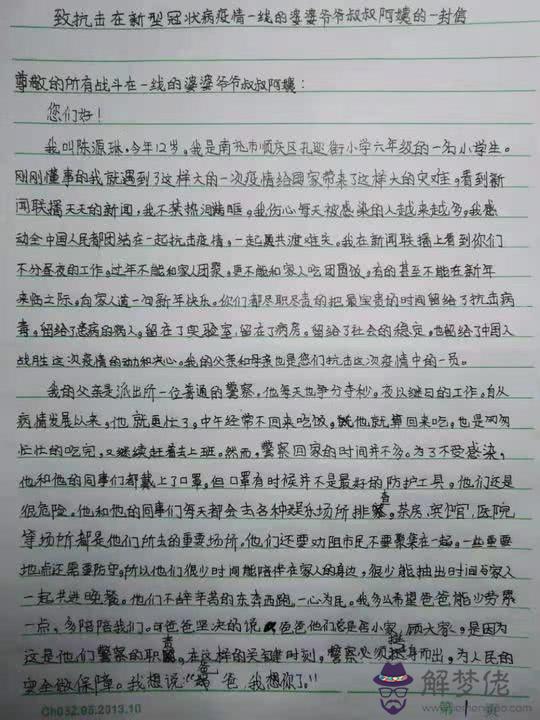 致抗击在新型冠状病疫情一线的婆婆爷爷叔叔阿姨的一封信
尊敬的所有战斗在一线的婆婆爷爷叔叔阿姨:
您们好!
我叫陈源琳,今年12岁。我是南充市顺庆区孔迩街小学六年级的一名小学生。
刚刚懂事的我就遇到了这样大的一次疫情给国家带来了这样大的灾难。看到新
闻联播天天的新闻,我不禁热泪满眶。我伤心每天被感染的人越来越多,我感
动全中国人民都团结在一起抗击疫情,一起共渡难关。我在新闻联播上看到你们
不分昼夜的工作。过年不能和家人团聚,更不能和家人吃团圆饭。有的甚至不能在新年
来临之际。向家人道一句新年快乐。你们都尽职尽责的把最宝贵的时间留给了抗击病
毒。留给了患病的病人。留在了实验室,留在了病房。留给了社会的稳定。也留给了中国人
战胜这次疫情的动力和决心。我的父亲和母亲也是您们抗击这次疫情中的一员。
我的父亲是派出所一位普通的警察,他每天也争分夺秒。夜以继日的工作。自从
病情发展以来,他就更忙了,中午经常不回来吃饭,他就算回来吃,也是匆匆
忙忙的吃完,又继续赶着去上班。然而,警察回家的时间并不多。为了不受感染,
他和他的同事们都戴上了口罩,但口罩有时候并不是最好的防护工具。他们还是
很危险。他和他的同事们每天都会去各种娱乐场所排查,茶房、宾馆、医院
等场所都是他们所去的重要场所。他们还要劝阻市民不要聚集在一起。一些重要
地点还需要防守。所以他们很少时间能陪伴在家人的身边,很少能抽出时间与家人
一起共进晚餐。他们不辞辛苦的东奔西跑,一心为民。我多么希望爸爸能少劳累
一点,多陪陪我们。可爸爸坚决的说爸爸他们总是舍小家,顾大家,是因为
这是他们警察的职责,在这样的关键时刻,警察必须挺身而出,为人民的
安全做保障。我想说“爸爸,我想你了。”
Ch032.95.2013.10
第 1 页
解梦佬